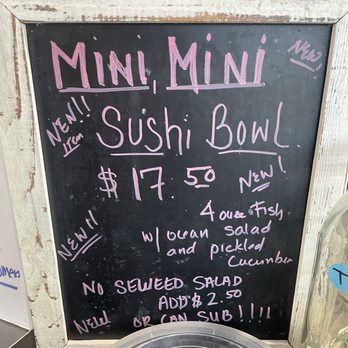 MINI, MINI
NEW
NEW!!
Item
Sushi Bowl
$17.50
NEW!
4 ounce Fish
w/ ocean salad
and pickled
cucumber
NEW!!
NO SEWEED SALAD
ADD $2.50
NEW OR CAN SUB!!!!